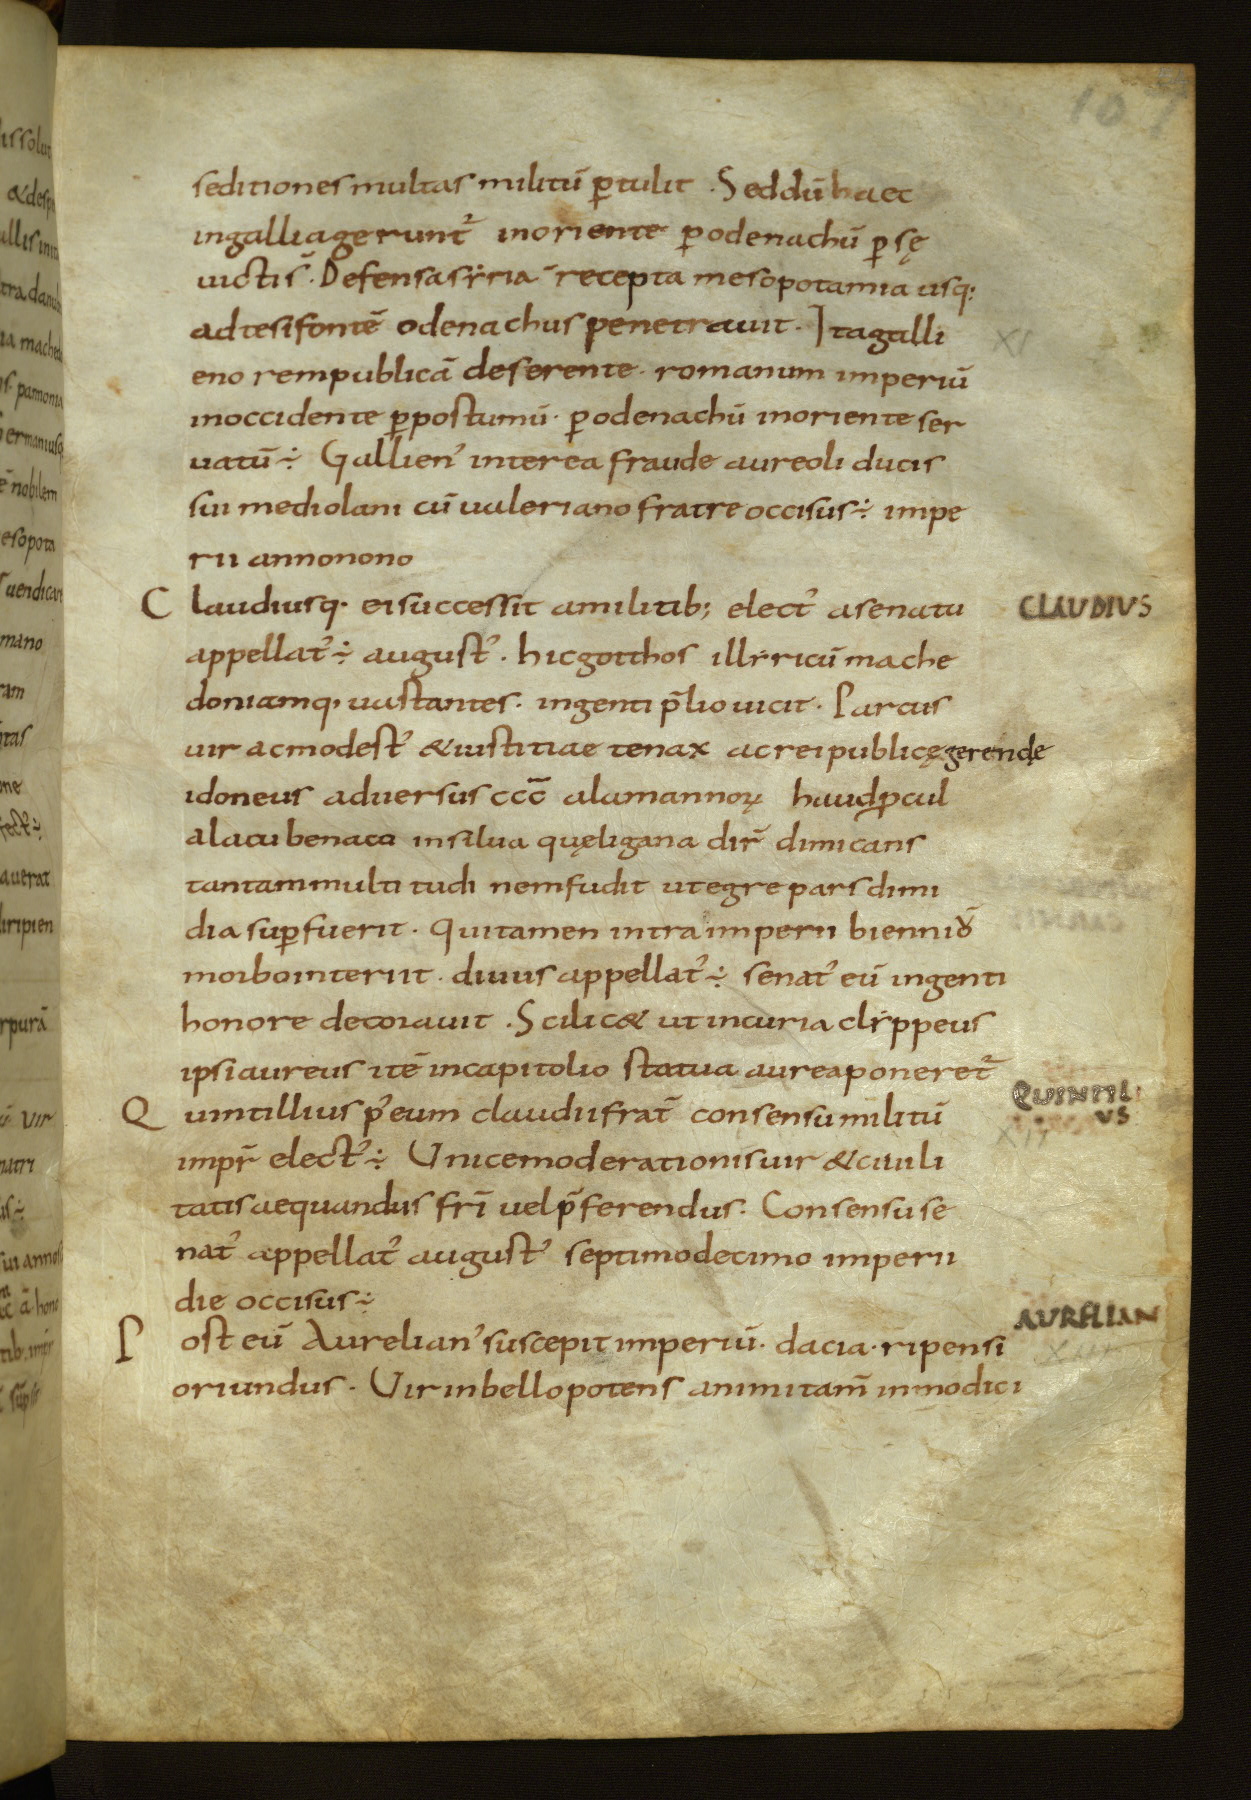 107
seditiones multas militū ꝑtulit. Sed dū haec
in gallia gerunt̄ in oriente ꝑ odenachū ꝑsę
uictis. Defensa sẏria recepta mesopotamia usq:
ad tesifontē odenachus penetrauit. Ita galli
XI
eno rempublicā deserente. romanum imperiū
in occidente ꝑ postumū. ꝑ odenachū in oriente ser
uatū÷ Gallien' interea fraude aureoli ducis
sui mediolani cū ualeriano fratre occisus÷ impe
rii anno nono
Claudiusq. ei successit a militib; elect' a senatu
CLAUDIUS
appellat'÷ august'. hic gotthos illẏricū mache
doniamq, uastantes. ingenti p̄lio uicit. Parcus
uir ac modest' & iustitiae tenax ac reipublicę gerendę
idoneus aduersus ccc̄ alamannoꝝ haud ꝓcul
a lacu benaco in silua quę ligana dir̄ dimicans
tantam multitudinem fudit ut egre pars dimi
dia suꝑfuerit. Qui tamen intra imperii bienniū
morbo interiit. diuus appellat'÷ senat' eū ingenti
honore decorauit. Scilic& ut in curia clẏppeus
ipsi aureus itē in capitolio statua aurea poneret̄
Quintillius p' eum claudii frat̄ consensu militū
QUINTILI
US
XII
impr̄ elect'÷ Unice moderationis uir & ciuili
tatis aequandus fr̄i uel p̄ferendus: Consensu se
nat' appellat' august' septimo decimo imperii
die occisus÷
Post eū Aurelian' suscepit imperiū. dacia. ripensi
AURELIAN
XIII
oriundus. Uir in bello potens animi tam̄ inmodici